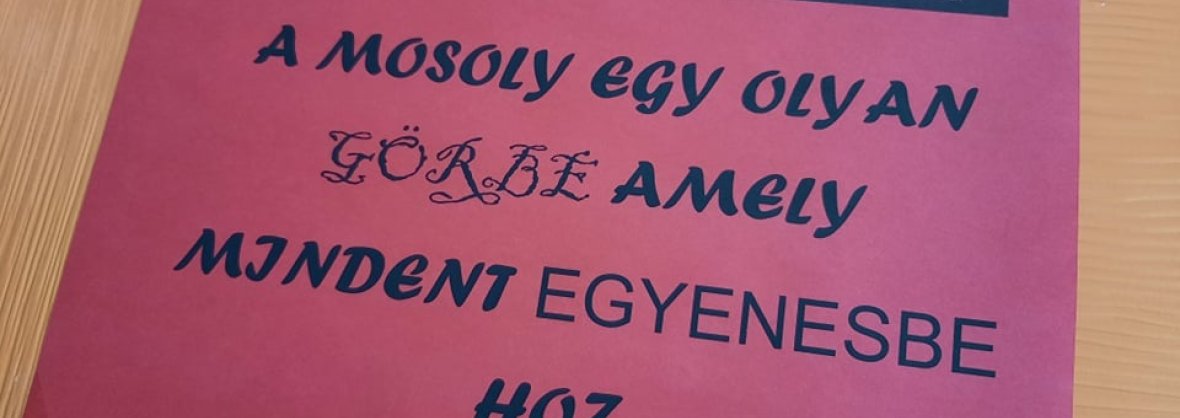 A MOSOLY EGY OLYAN
GÖRBE AMELY
MINDENT EGYENESBE
HOZ